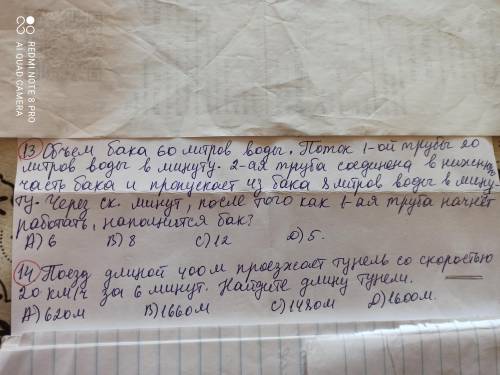 REDMI NOTE 8 PRO
AI QUAD CAMERA
13 Объем бака 60 литров воды. Поток 1-ой трубы 20
литров воды в минуту. 2-ая труба соединена в нижнюю
часть бака и пропускает из бака 8 литров воды в мину
ту. Через ск. минут, после того как 1-ая труба начнет
работать, наполнится бак?
A) 6 B) 8 C) 12 D) 5.
14 Поезд длиной 400м проезжает тунель со скоростью
20 км/ч за 6 минут. Найдите длину тунели.
A) 620м B) 1660м C) 1480м D) 1600м.